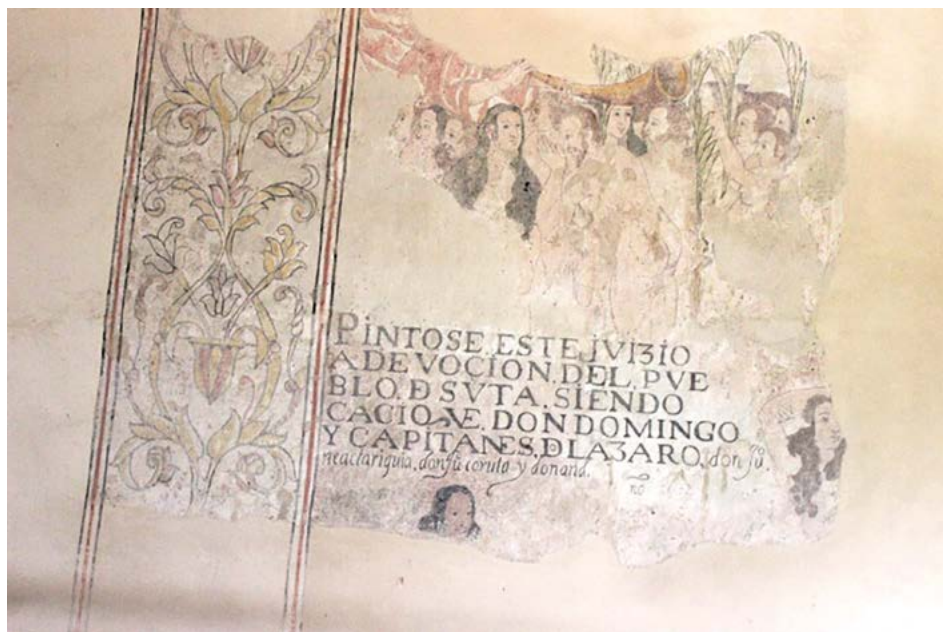 PINTOSE.ESTE JVIZIO
A DEVOCION.DEL.PVE
BLO.D SVTA.SIENDO
CACIQVE.DON DOMINGO
Y CAPITANES.D LAZARO, don Jũ.
neaclariquia, don jũ coruta y don and.